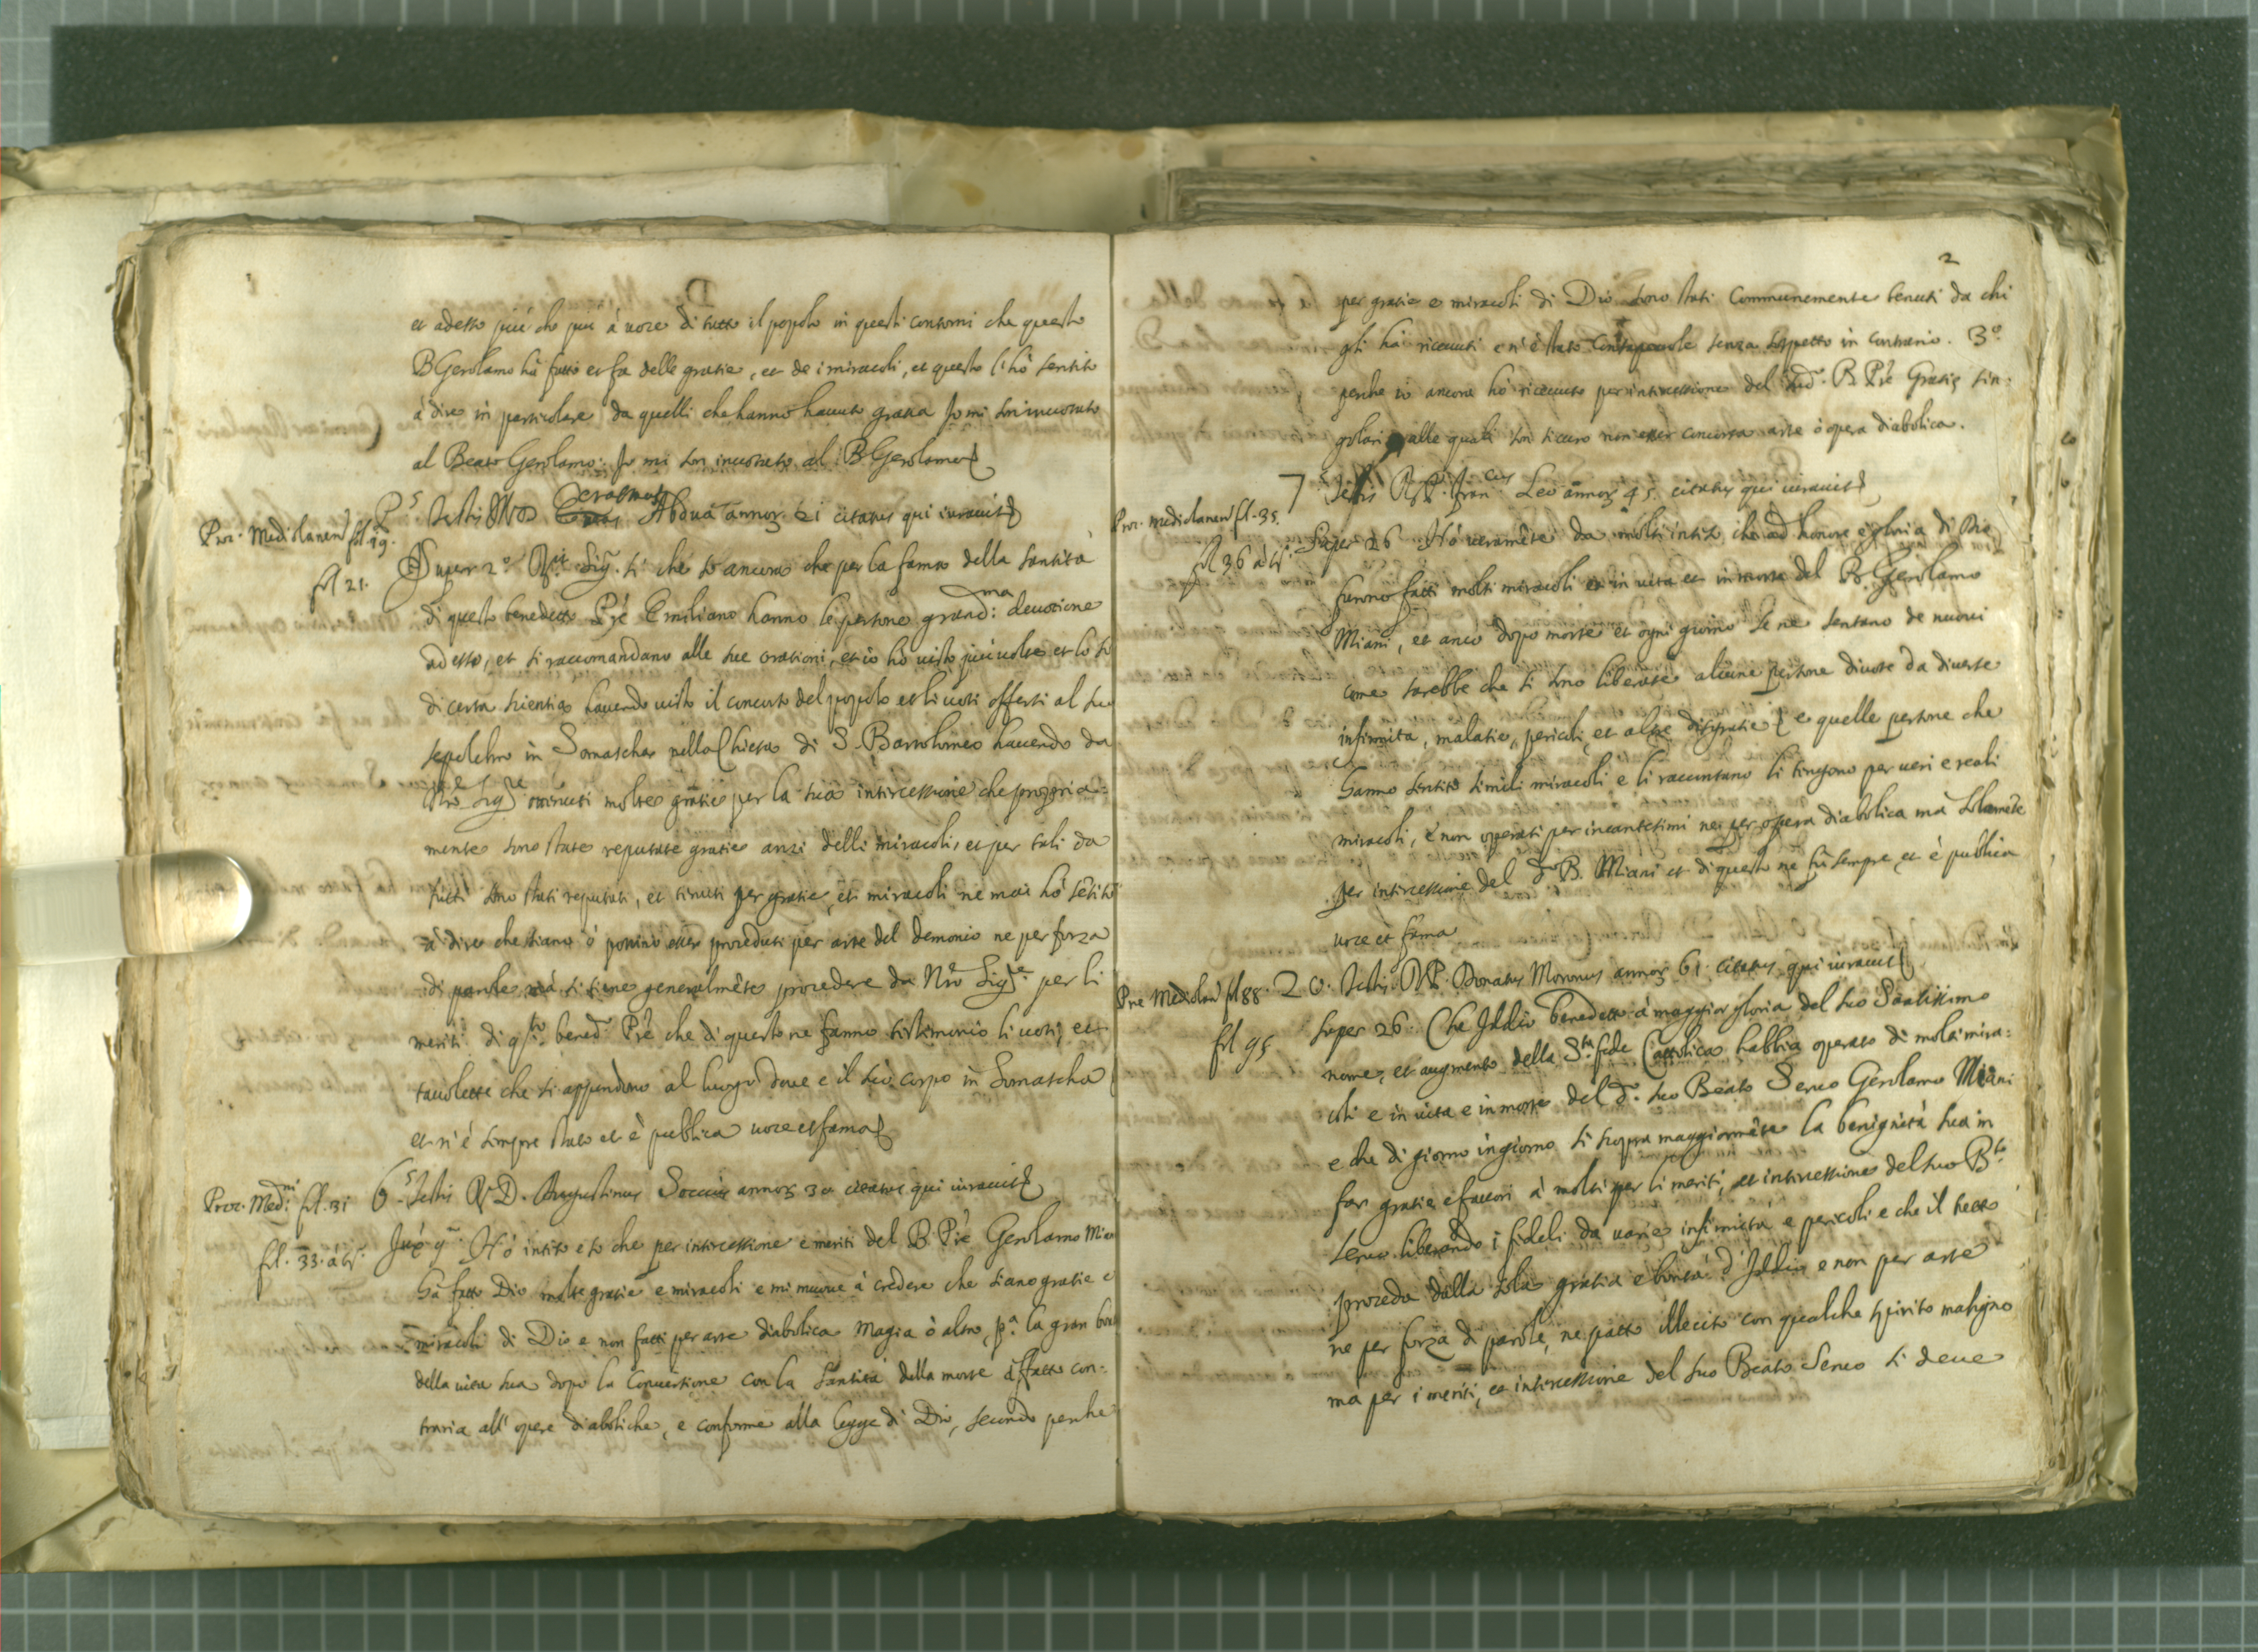 et adesso più che più à voce di tutto il popolo in questi contorni che questo
B Gerolamo hà fatto et fa delle gratie, et de i miracoli, et questo l'hò sentito
à dire in particolare da quelli che hanno havuto gratia Jo mi son invocato
al Beato Gerolamo: Jo mi son invocato al B Gerolamo
5.s Testis Abdua annor 61 citatus qui iuravit
Proc. Mediolanen fol 19.
Super 2.o sì che so ancora che per la fama della santità
fol 21.
di questo benedetto Pré Emiliano hanno le persone grand:ma devotione
adesso, et si raccomandano alle sue orationi, et io hò visto più volte et lo so
di certa scientia havendo visto il concorso del popolo et li voti offerti al suo
sepolchro in Somascha nella Chiesa di S. Bartolomeo havendo da
Nro Sigre ottenuti molte gratie per la sua intercessione che propria:
mente sono state reputate gratie anzi delli miracoli, et per tali da
tutti sono stati reputati, et tenuti per gratie, et miracoli ne mai hò sētito
à dire che siano ò possino esser proceduti per arte del demonio ne per forza
di parole mà si tiene generalmēte procedere da Nro Sigre per li
meriti di qsto bened.o Pré che di questo ne fanno testimonio li voti, et
tavolette che si appendono al luogo dove e il suo corpo in Somascha
et n'é sempre stato et è publica voce et fama
Proc. Med.ni fol. 31 6.s Testis D. Augustinus Soccus annor 30 citatus qui iuravit
fol. 33. à tergo Hò inteso e so che per intercessione e meriti del B. Pré Gerolamo Miani
hà fatto Dio molte gratie e miracoli e mi muove à credere che siano gratie e
miracoli di Dio e non fatti per arte diabolica magia ò altro, p.a la gran bontà
della vita sua dopo la conversione con la santità della morte affatto con:
traria all'opere diaboliche, e conforme alla legge di Dio, secondo perche
2
per gratie e miracoli di Dio sono stati communemente tenuti da chi
gli hà ricevuti e n'è stato consapevole senza sospetto in contrario. 3.o
perche io ancora hò ricevuto per intercessione del sud.o B. Pré Gratie sin:
golari alle quali son sicuro non esser concorsa arte ò opera diabolica.
7 Testis Francus Leo annor 45 citatus qui iuravit
Proc. mediolanen fol. 35.
Super 26 Hò veramēte da molti inteso che ad honore e gloria di Dio
fol 36 à tergo
furono fatti molti miracoli et in vita et in morte del B. Gerolamo
Miani, et anco dopo morte et ogni giorno se ne sentano de nuovi
come sarebbe che si sono liberate alcune persone divote da diverse
infirmità, malatie, pericoli, et altre disgratie e quelle persone che
hanno sentito simili miracoli e li raccontano li tengono per veri e reali
miracoli, e non operati per incantesimi ne per opera diabolica ma solamēte
per intercessione del d.o B. Miani et di questo ne fù sempre, et è publica
voce et fama
Proc Mediolan fol 88. 20. Testis Donatus Moronus annor 61 citatus qui iuravit
fol 95 Super 26. Che Iddio benedetto à maggior gloria del suo Santissimo
nome, et augmento della S.ta fede Cattolica habbia operato di molti mira:
coli e in vita e in morte del d.o suo Beato Servo Gerolamo Miani
e che di giorno in giorno si scopra maggiormēte la benignità sua in
far gratie e favori à molti per li meriti, et intercessione del suo B.to
servo liberando i fideli da varie infirmità e pericoli e che il tutto
proceda dalla sola gratia e bontà d'Iddio e non per arte
ne per forza di parole, ne patto illecito con qualche spirito maligno
ma per i meriti, et intercessione del suo Beato Servo si deve